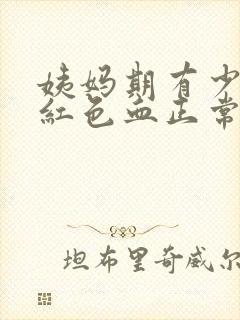 姨妈期有少
红色血正常
坦布里奇威尔